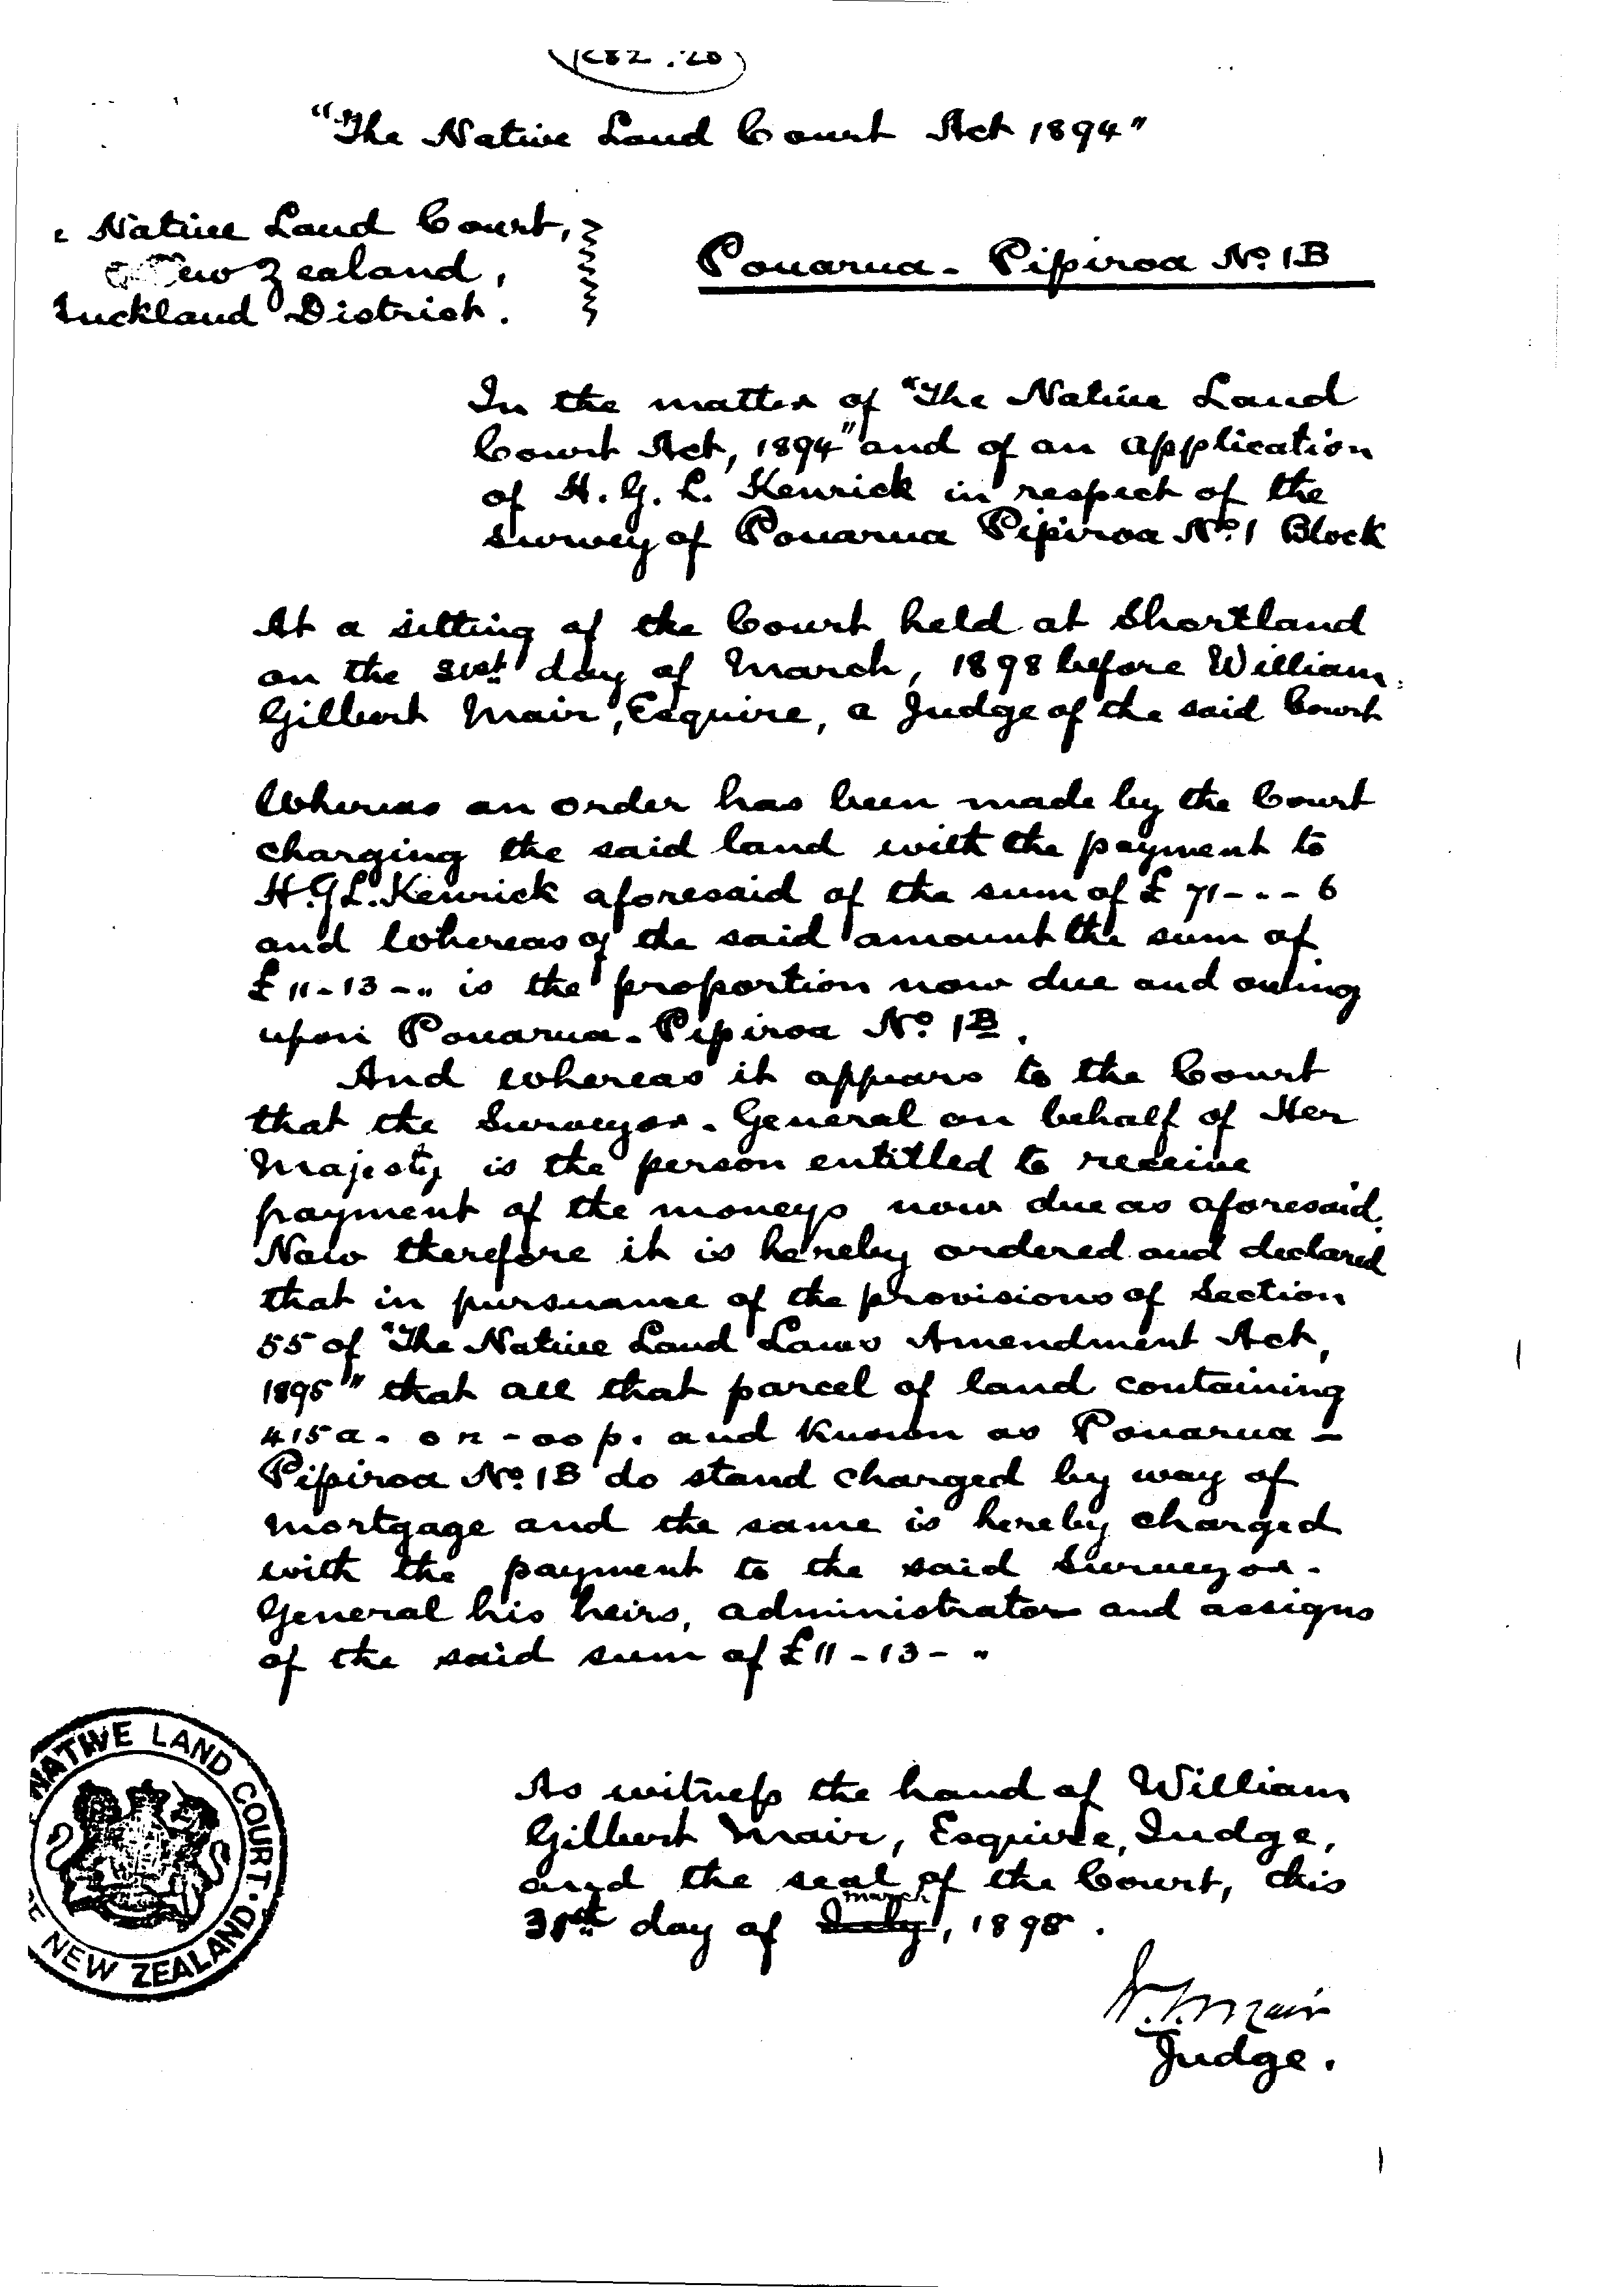 "The Native Land Court Act 1894"
Native Land Court,
New Zealand,
Auckland District.
Pouarua - Pipiroa No. 1B
In the matter of "The Native Land
Court Act, 1894" and of an application
of H. G. L. Kenrick in respect of the
survey of Pouarua Pipiroa No. 1 Block
At a sitting of the Court held at Shortland
on the 31st day of March, 1898 before William
Gilbert Mair, Esquire, a Judge of the said Court
Whereas an order has been made by the Court
charging the said land with the payment to
H.G.L. Kenrick aforesaid of the sum of £ 71 - .. - 6
and Whereas of the said amount the sum of
£ 11 - 13 - .. is the proportion now due and owing
upon Pouarua - Pipiroa No. 1B.
And whereas it appears to the Court
that the Surveyor - General on behalf of Her
Majesty is the person entitled to receive
payment of the moneys now due as aforesaid.
Now therefore it is hereby ordered and declared
that in pursuance of the provisions of Section
55 of "The Native Land Laws Amendment Act,
1895" that all that parcel of land containing
415a - 0r - 00p. and known as Pouarua -
Pipiroa No. 1B do stand charged by way of
mortgage and the same is hereby charged
with the payment to the said Surveyor -
General his heirs, administrators and assigns
of the said sum of £11 - 13 - "
NATIVE LAND COURT
NEW ZEALAND
As witness the hand of William
Gilbert Mair, Esquire, Judge,
and the seal of the Court, this
31st day of July March, 1898.
W.G. Mair
Judge.